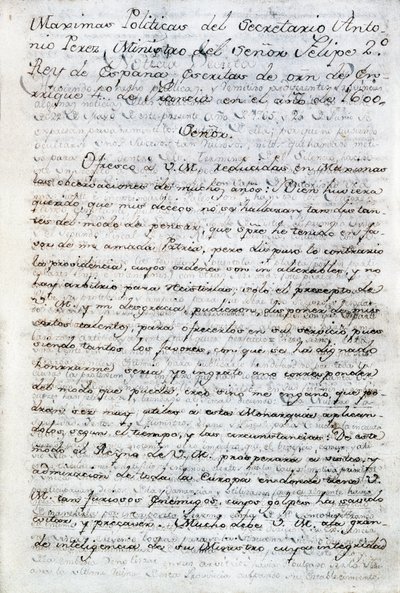 Maximas Politicas del Secretario Anto-
nio Perez, Ministro del Señor Felipe 2.º
Rey de España Escritas de orn de En-
rrique 4. de Francia en el año de 1600.
Señor.
Ofresco à V. M. reducidas en Maximas
las observaciones de mucho años: Bien huviera
querido, que mis deceos no se hallaran tan distan-
tes del modo de pensar, que spre he tenido en fa-
vor de mi amada Patria, pero dispuso lo contrario
la providencia, cuyos ordenes son inalterables, y no
hay arbitrio para resistirlas: solo el precepto de
V. M. y mi desgracia, pudieron disponer de mis
cortos talentos, para ofrecerlos en su servicio pues
siendo tantos los favores, con que se ha dignado
honrrarme seria yo ingrato a no corresponder
del modo que puedo, creo sino me engaño, que po-
dran ser mui utiles a esta Monarquia aplican-
dolos segun el tiempo, y las circunstancias: De este
modo el Reyno de V. M. prosperara a vista, y
admiracion de toda la Europa en donde tiene V.
M. tan furiosos Enemigos, cuyos golpes ha savido
evitar, y precaver. Mucho debe V. M. a la gran-
de inteligencia de su Ministro, cuya integridad